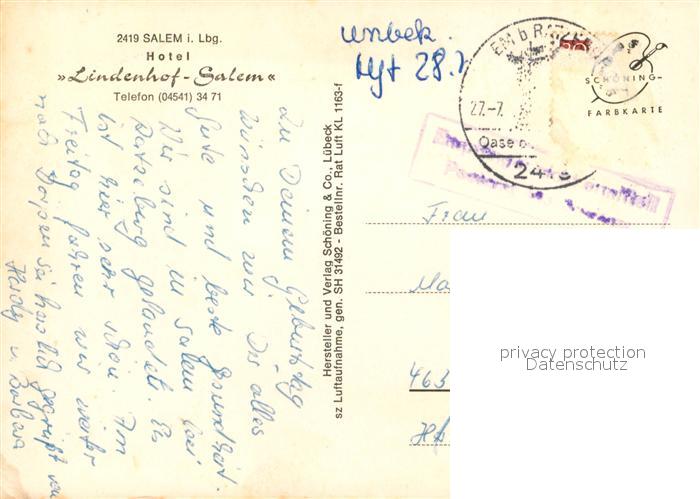 2419 SALEM i. Lbg.
Hotel
»Lindenhof-Salem«
Telefon (04541) 34 71
Zu Deinem Geburtstag
wünschen wir Dir alles
Gute und beste Gesundheit.
Wir sind in Salem bei
Ratzeburg gelandet. Es
ist hier sehr schön. Am
Freitag fahren wir weiter
nach
sei herzlich gegrüßt von
Barbara
Hersteller und Verlag Schöning & Co., Lübeck
sz Luftaufnahme, gen. SH 31492 - Bestellnr. Rat Luft KL 1163-f
unbek.
28.7
EM b RATZEB
27.-7.
Oase
2419
SCHÖNING-
FARBKARTE
Frau
463
privacy protection
Datenschutz